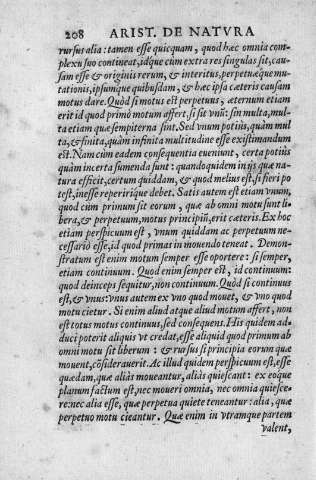 208 ARIST. DE NATVRA
rursus alia: tamen esse quicquam, quod hæc omnia com-
plexu suo contineat, idque cum extra res singulas sit, cau-
sam esse & originis rerum, & interitus, perpetuæque mu-
tationis, ipsumque quibusdam, & hæc ipsa cæteris causam
motus dare. Quòd si motus est perpetuus, æternum etiam
erit id quod primò motum affert, si sit vnũ: sin multa, mul-
ta etiam quæ sempiterna sint. Sed vnum potiùs, quàm mul
ta, & finita, quàm infinita multitudine esse existimandum
est. Nam cum eadem consequentia eueniunt, certa potiùs
quàm incerta sumenda sunt: quandoquidem in ijs quæ na-
tura efficit, certum quiddam, & quod melius est, si fieri po
test, inesse reperirique debet. Satis autem est etiam vnum,
quod cum primùm sit eorum, quæ ab omni motu sunt li-
bera, & perpetuum, motus principiũ, erit cæteris. Ex hoc
etiam perspicuum est, vnum quiddam ac perpetuum ne-
cessariò esse, id quod primas in mouendo teneat. Demon-
stratum est enim motum semper esse oportere: si semper,
etiam continuum. Quod enim semper est, id continuum:
quod deinceps sequitur, non continuum. Quòd si continuus
est, & vnus: vnus autem ex vno quod mouet, & vno quod
motu cietur. Si enim aliud atque aliud motum affert, non
est totus motus continuus, sed consequens. His quidem ad-
duci poterit aliquis vt credat, esse aliquid quod primum ab
omni motu sit liberum: & rursus si principia eorum quæ
mouent, cõsiderauerit. Ac illud quidem perspicuum est, esse
quædam, quæ aliàs moueantur, aliàs quiescant: ex eoque
planum factum est, nec moueri omnia, nec omnia quiesce-
re: nec alia esse, quæ perpetua quiete teneantur: alia, quæ
perpetuo motu cieantur. Quæ enim in vtramque partem
valent,